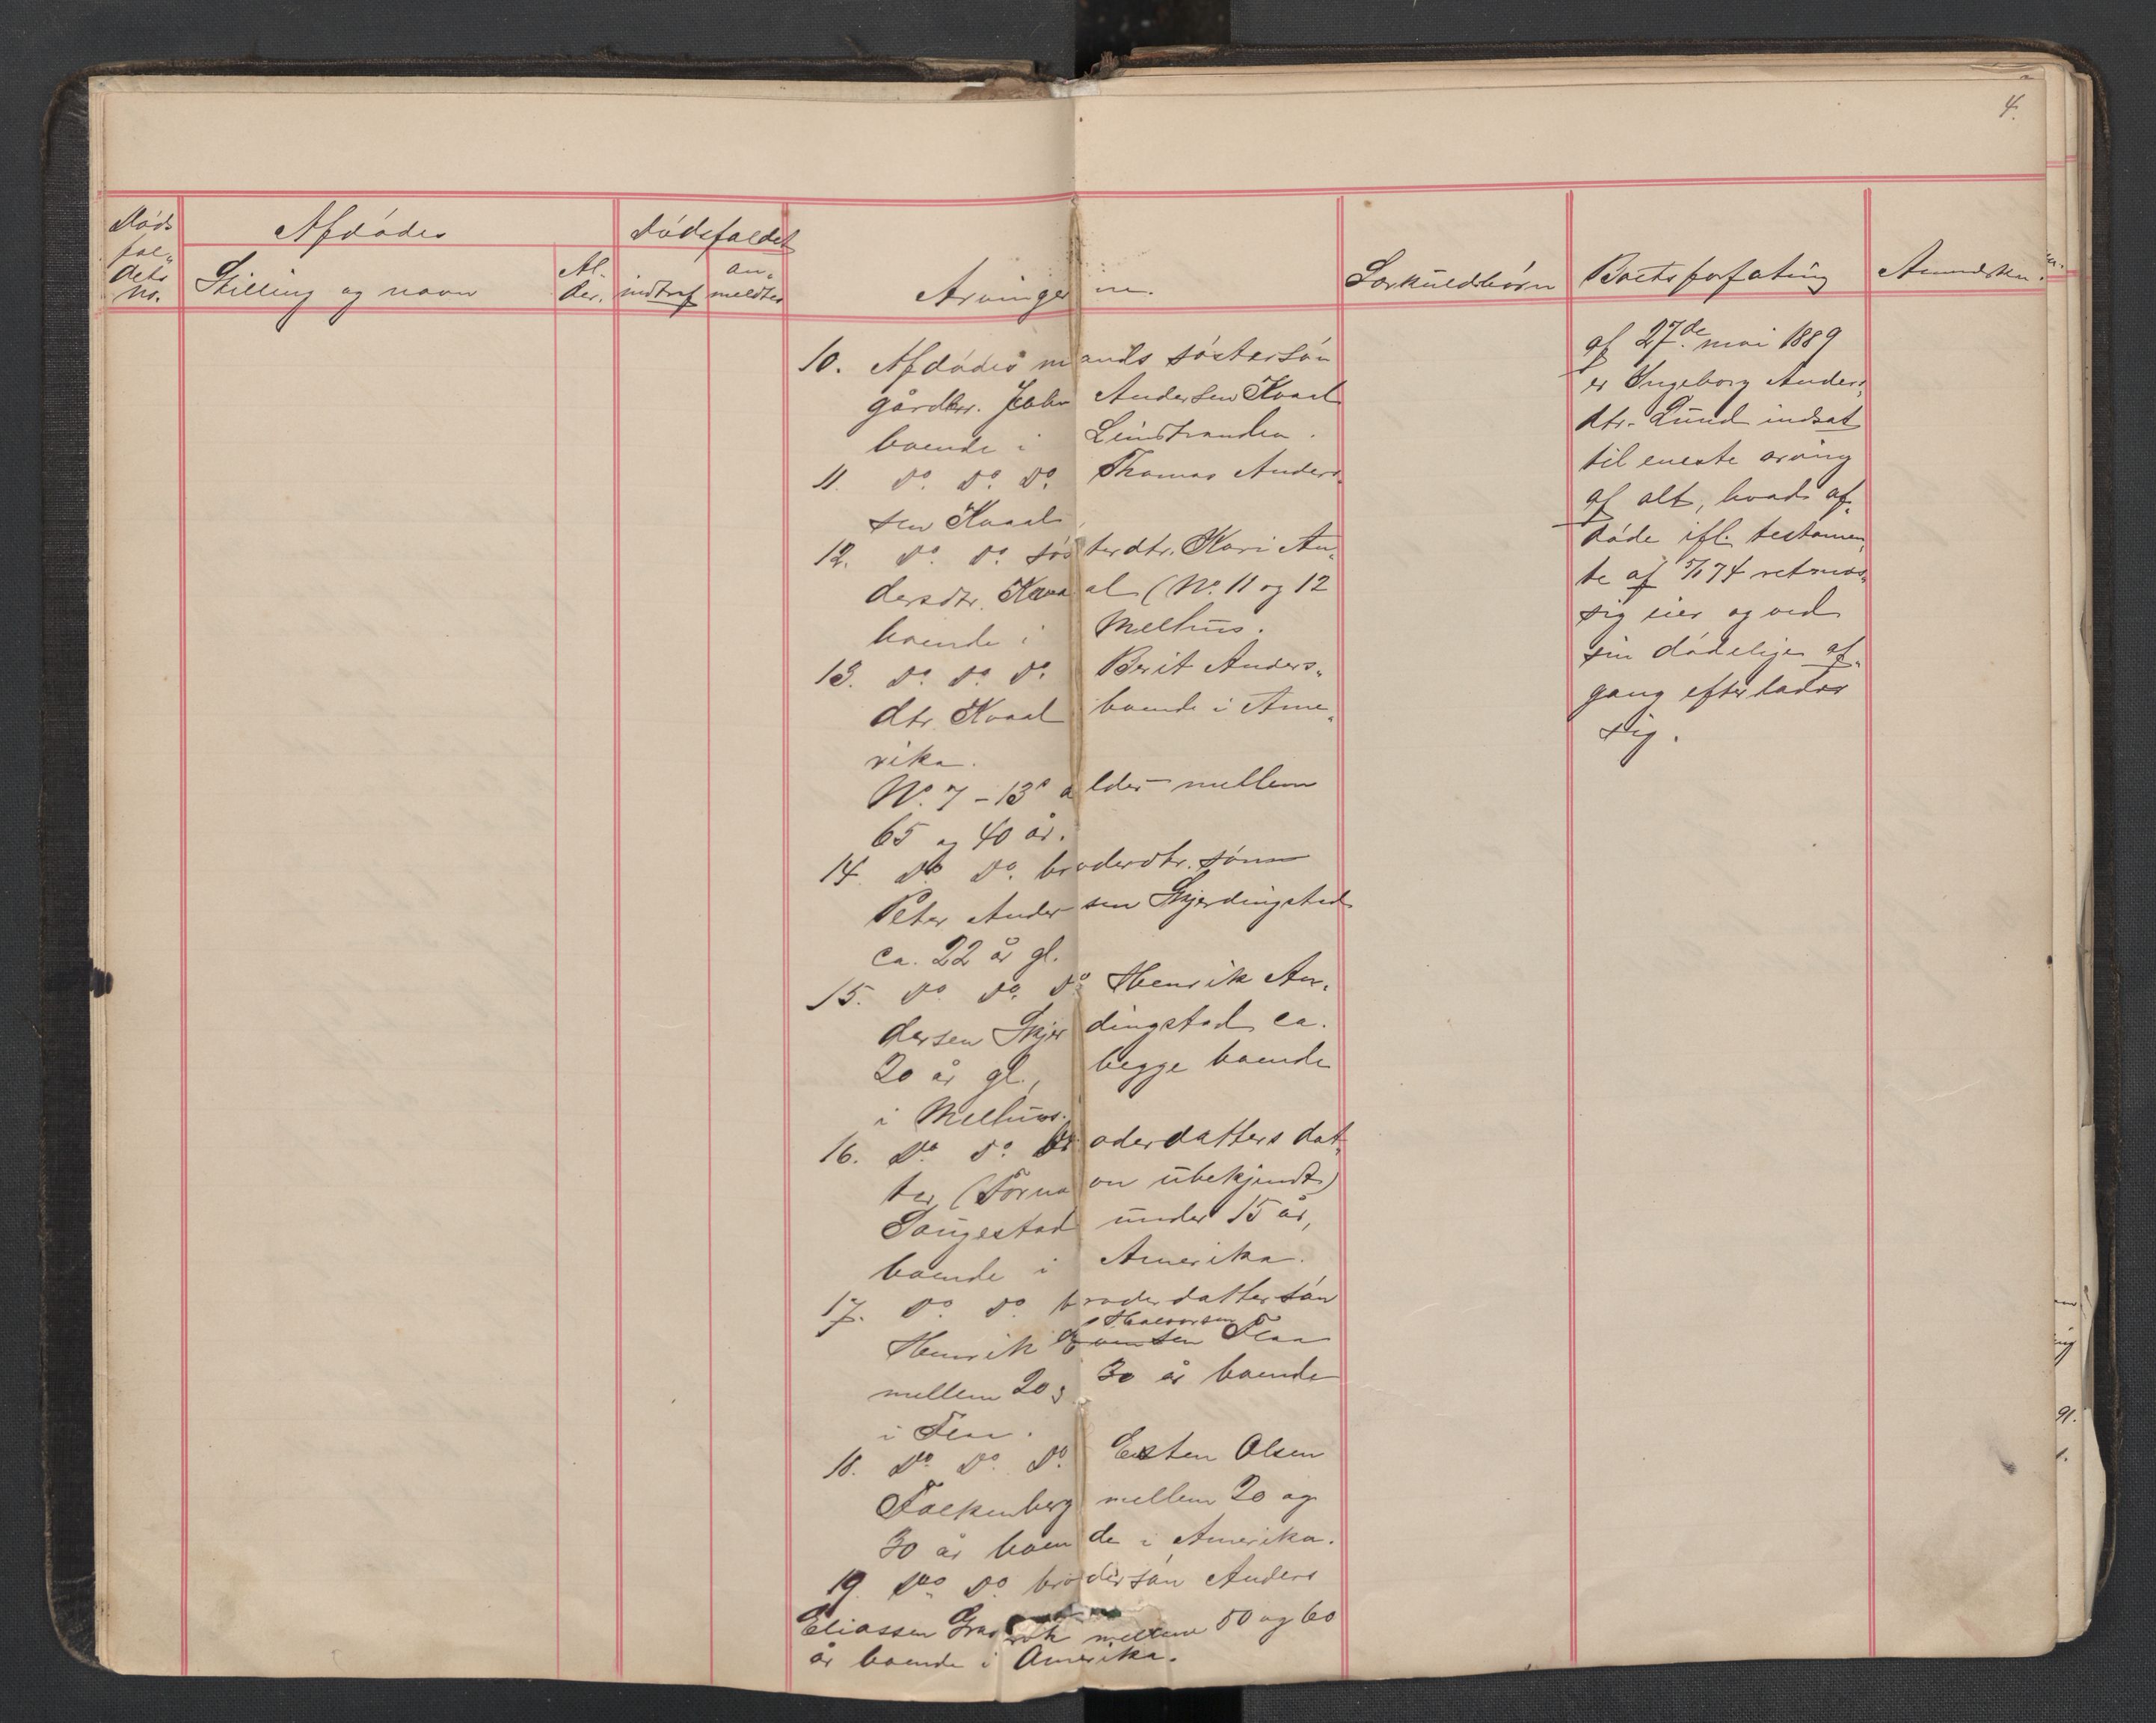 4.
Døds
fal-
dets
no.
Afdødes
Stilling og navn
Al-
der.
Dødsfaldet
indtraf
an-
meldtes
Arvingerne.
Særkuldsbørn
Boets forfatning
Anmerkn.
10. Afdødes mands søstersøn
gårdbr. John Andersen Kvaal
boende i Leinstranden.
11. Do. Do. Do. Thomas Anders-
sen Kvaal
12. Do. Do. søsterdtr. Kari An-
dersdtr. Kvaal (No. 11 og 12
boende i Melhus.
13. Do. Do. Do. Berit Anders-
dtr. Kvaal boende i Ame-
rika.
No. 7 - 13s alder mellem
65 og 40 år.
14. Do. Do. broderdtr. sønn
Peter Andersen Skjerdingstad
ca. 22 år gl.
15. Do. Do. Do. Henrik An-
dersen Skjerdingstad ca.
20 år gl., begge boende
i Melhus.
16. Do. Do. broderdatters dat-
ter, (Fornavn ubekjendt)
Saugestad under 15 år,
boende i Amerika.
17. Do. Do. broderdattersøn
Halvorsen
Henrik Evensen Flaa
mellem 20 og 30 år boende
i Flaa.
18. Do. Do. Do. Esten Olsen
Falkenberg mellem 20 og
30 år boende i Amerika.
19. Do. Do. brodersøn Anders
Eliassen mellem 50 og 60
år boende i Amerika.
af 27de mai 1889
er Ingeborg Anders-
dtr. Lund indsat
til eneste arving
af alt, hvad af-
døde ifl. testamen-
te af 5/10 74 retmæs-
sig eier og ved
sin dødelige af-
gang efterlader
sig.
91.